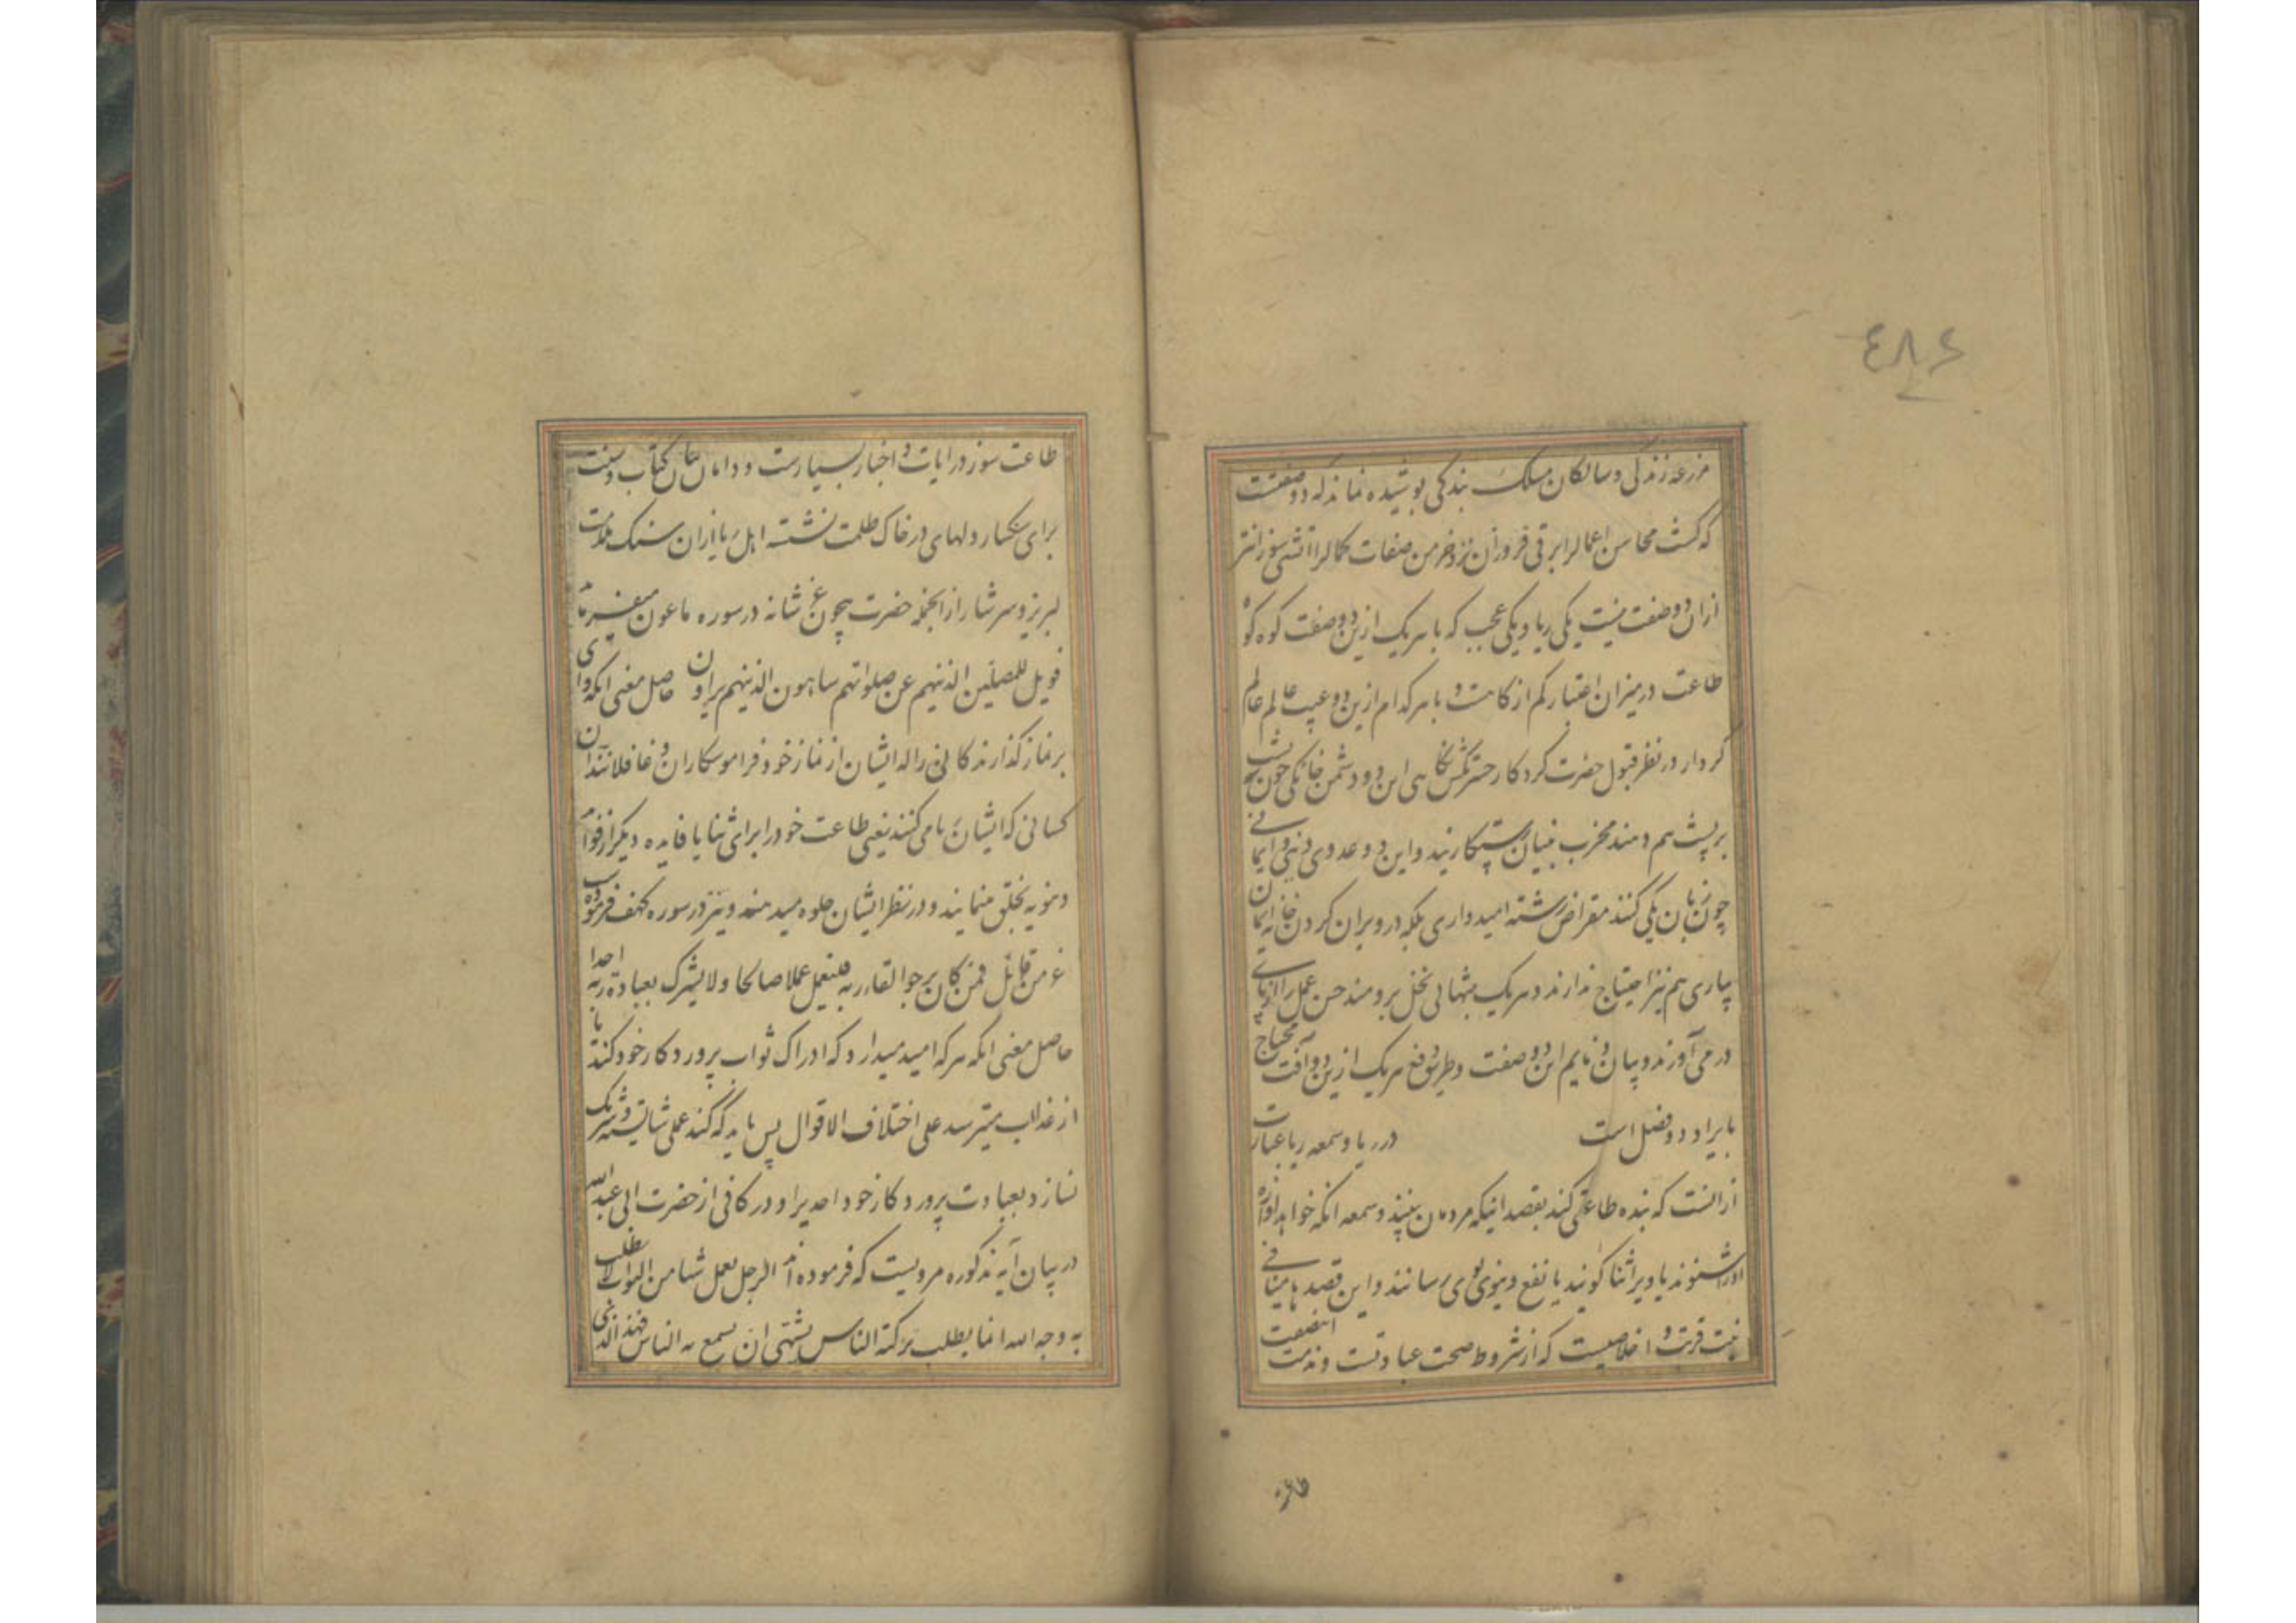 ٤٨٤
مزرعه زندکی و سالکان مسلک بندکی پوشیده نماند که دو صفتست
که کشت محاسن اعمالرا برقی فروزان و خرمن صفات کمالرا آتشی سوزانتر
ازان دو صفت نیست یکی ریا و یکی عجب که با هر یک ازین دو صفت کوه کوه
طاعت در میزان اعتبار کم از کاهست و با هر کدام ازین دو عیب عالم عالم
کردار در نظر قبول حضرت کردکار این دو دشمن خانکی چون پشت
بر پشت هم دهند مخرب بنیان رستکاریند و این دو عدوی دینی و ایمانی
چون زبان یکی کنند مقراض رشته امیدواری بلکه در ویران کردن خانه ایمان
بیاری هم نیز احتیاج ندارند و هر یک بتنهائی نخل برومند حسن عمل را از پای
در می آورند و بیان این دو صفت و طریق دفع هر یک ازین دو آفت محتاج
بایراد دو فصل است در ریا و سمعه ریا عبارت
از انست که بنده طاعتی کند بقصد اینکه مردمان ببینند و سمعه انکه خواهد آوازه
اورا شنوند یا ویرا ثنا کویند یا نفع دنیوی بوی رسانند و این قصد ها منافی
نیت قربت و اخلاصیست که از شروط صحت عبادتست و مذمت اینصفت
طاعت
طاعت سوز در ایات و اخبار بسیارست و دامان بیان کتاب و سنت
برای سنکسار دلهای در خاک ظلمت نشسته اهل ریا ازان سنک ملامت
لبریز و سرشار از انجمله حضرت بیچون عز شانه در سوره ماعون میفرماید
فویل للمصلین الذینهم عن صلواتهم ساهون الذینهم یراون حاصل معنی انکه وای
بر نماز کذارند کانی را که ایشان از نماز خود فراموشکاران و غافلانند آن
کسانی که ایشان ریا می کنند یعنی طاعت خود را برای ثنا یا فایده دیکر از فواید
دنیویه بخلق مینمایند و در نظر ایشان جلوه میدهند و نیز در سوره کهف فرموده
عز من قائل فمن کان یرجوا لقاء ربه فلیعمل عملا صالحا ولا یشرک بعبادة ربه احدا
حاصل معنی انکه هر که امید میدارد که ادراک ثواب پروردکار خود کند یا
از عذاب میترسد علی اختلاف الاقوال پس باید که کند عملی شایسته و شریک
نسازد بعبادت پروردکار خود احدیرا و در کافی از حضرت ابی عبدالله
در بیان آیه مذکوره مرویست که فرموده اند الرجل یعمل شیئا من الثواب لا یطلب
به وجه الله انما یطلب تزکیة الناس یشتهی ان یسمع به الناس فهذا الذی